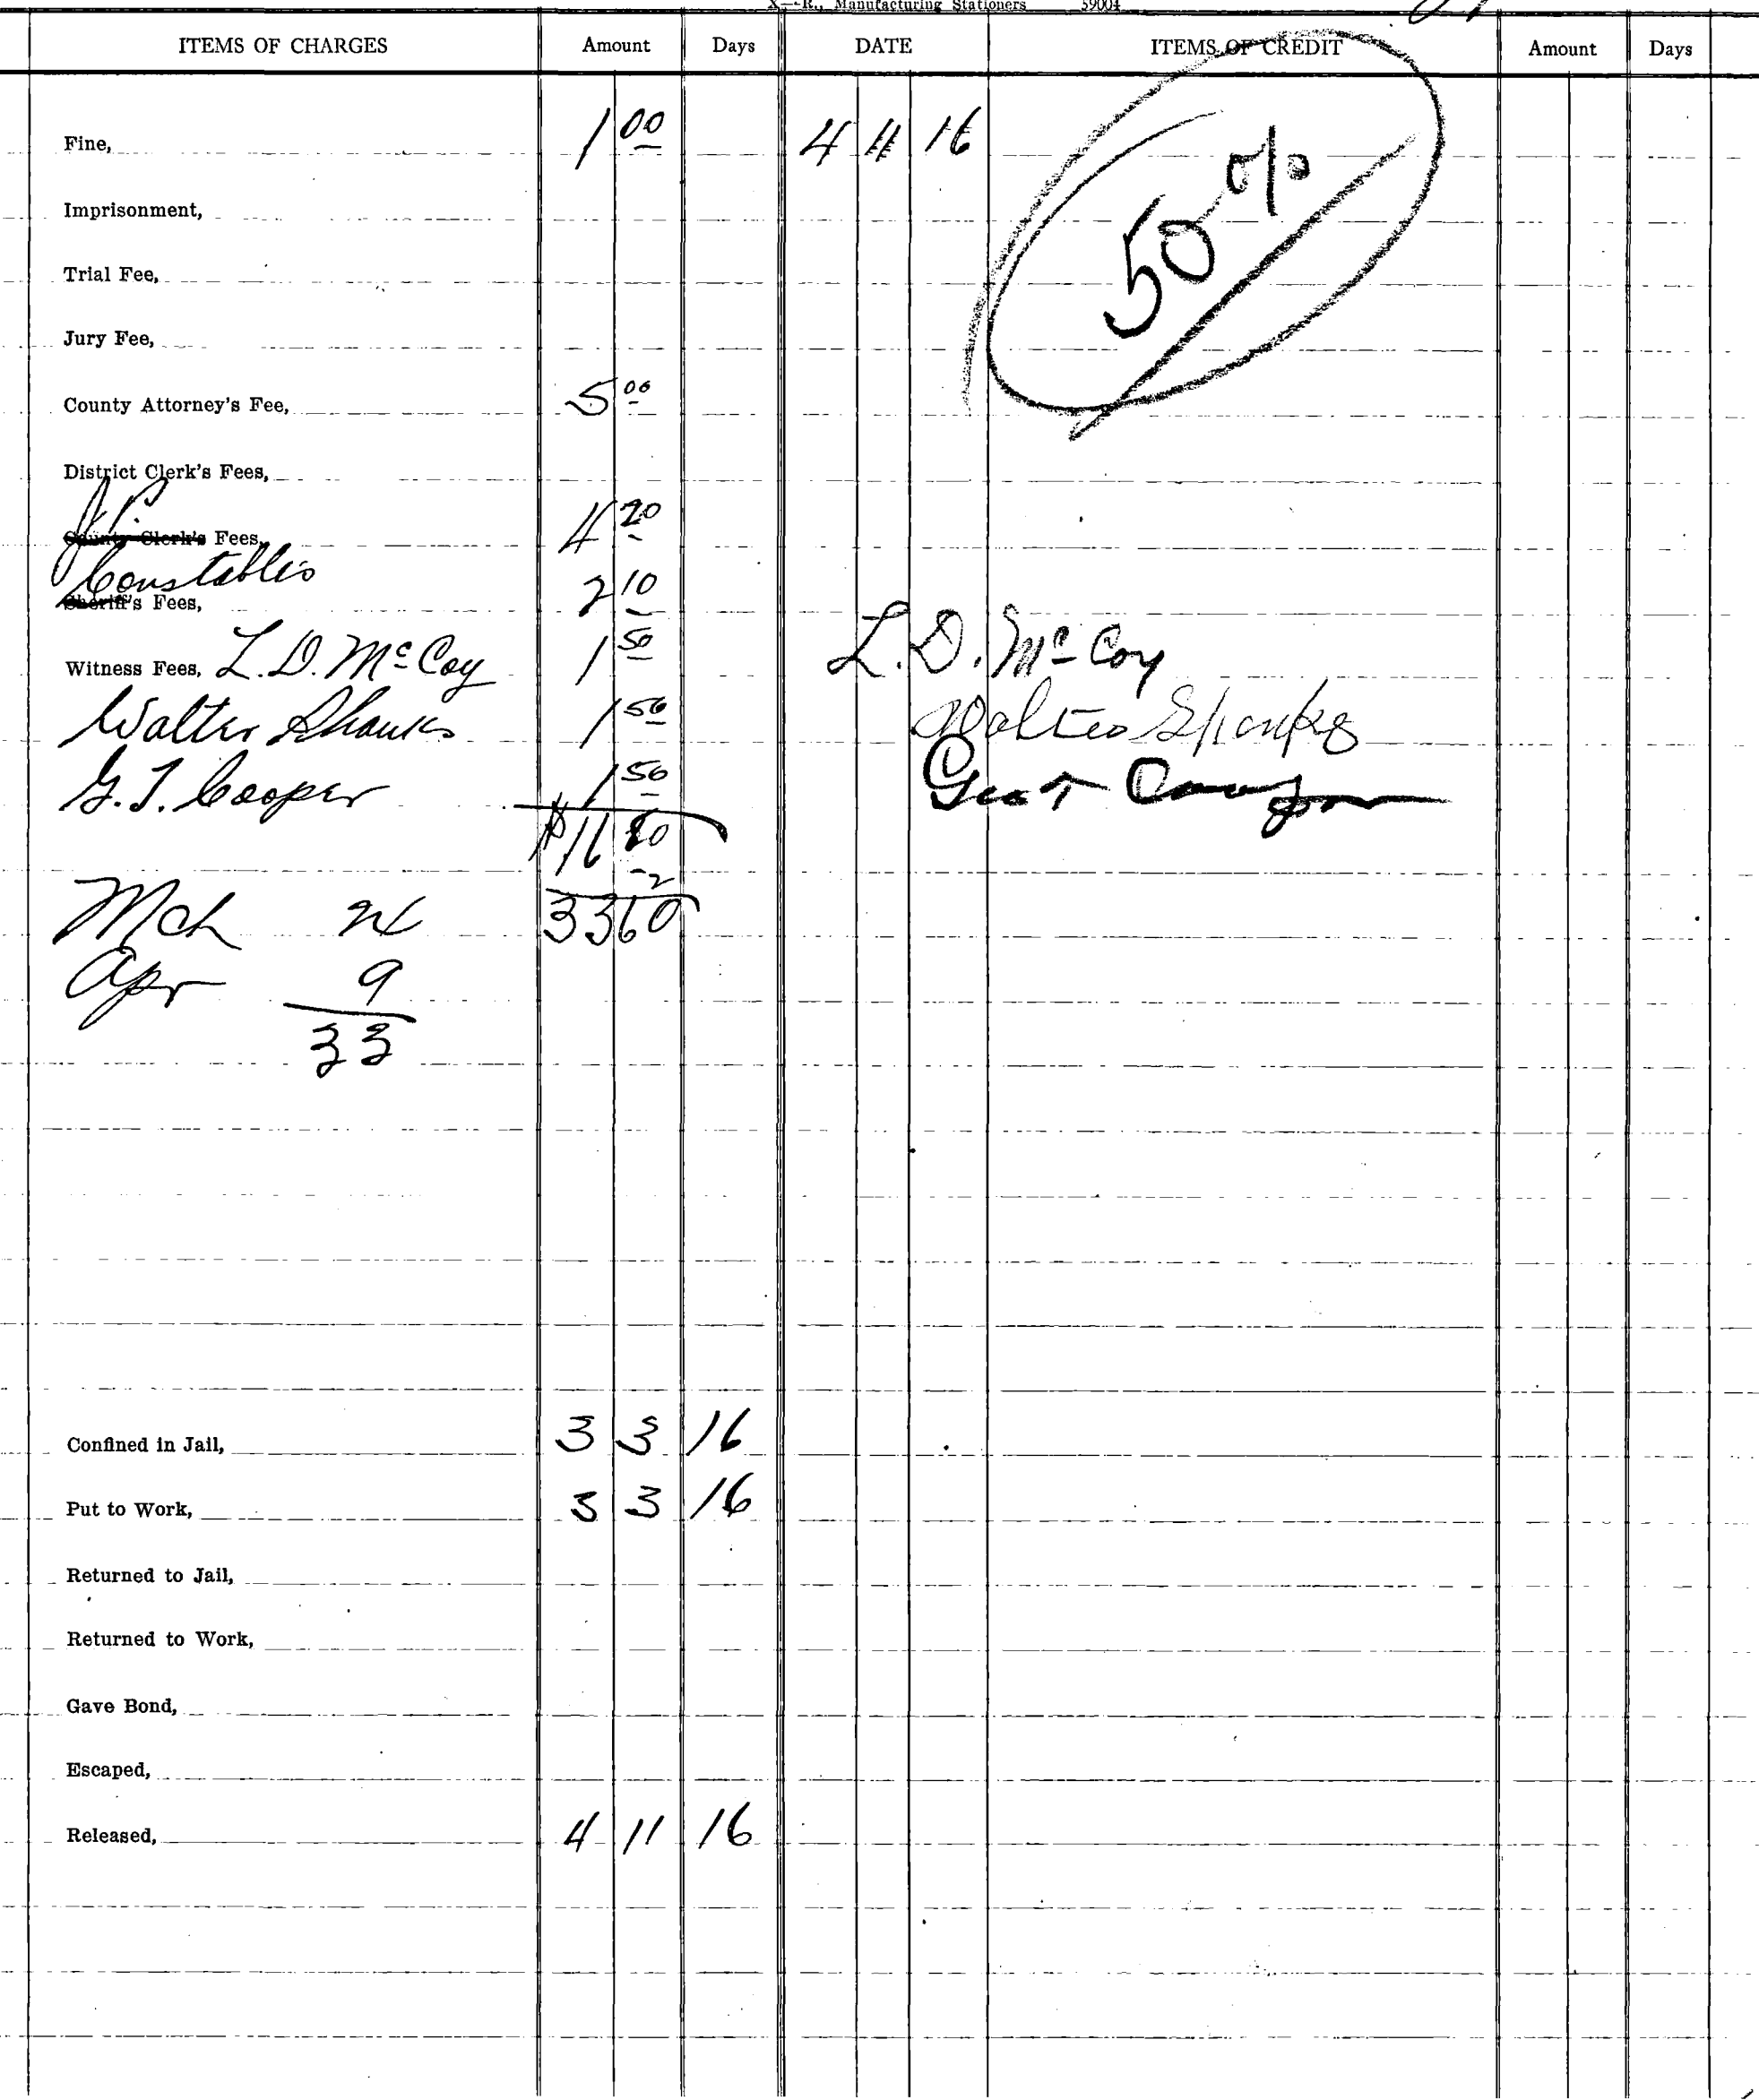 X—R., Manufacturing Stationers 59004
ITEMS OF CHARGES Amount Days DATE ITEMS OF CREDIT Amount Days
Fine, 1 00 4 11 16
50 %
Imprisonment,
Trial Fee,
Jury Fee,
County Attorney's Fee, 5 00
District Clerk's Fees,
J.P. County Clerk's Fees, 4 20
Constables
Sheriff's Fees, 2 10
Witness Fees, L. D. McCoy 1 50 L. D. McCoy
Walter Shanks 1 50 Walter Shanks
G. T. Cooper 1 50
$16 80
2
33 60
Mch 24
Apr 9
33
Confined in Jail, 3 3 16
Put to Work, 3 3 16
Returned to Jail,
Returned to Work,
Gave Bond,
Escaped,
Released, 4 11 16